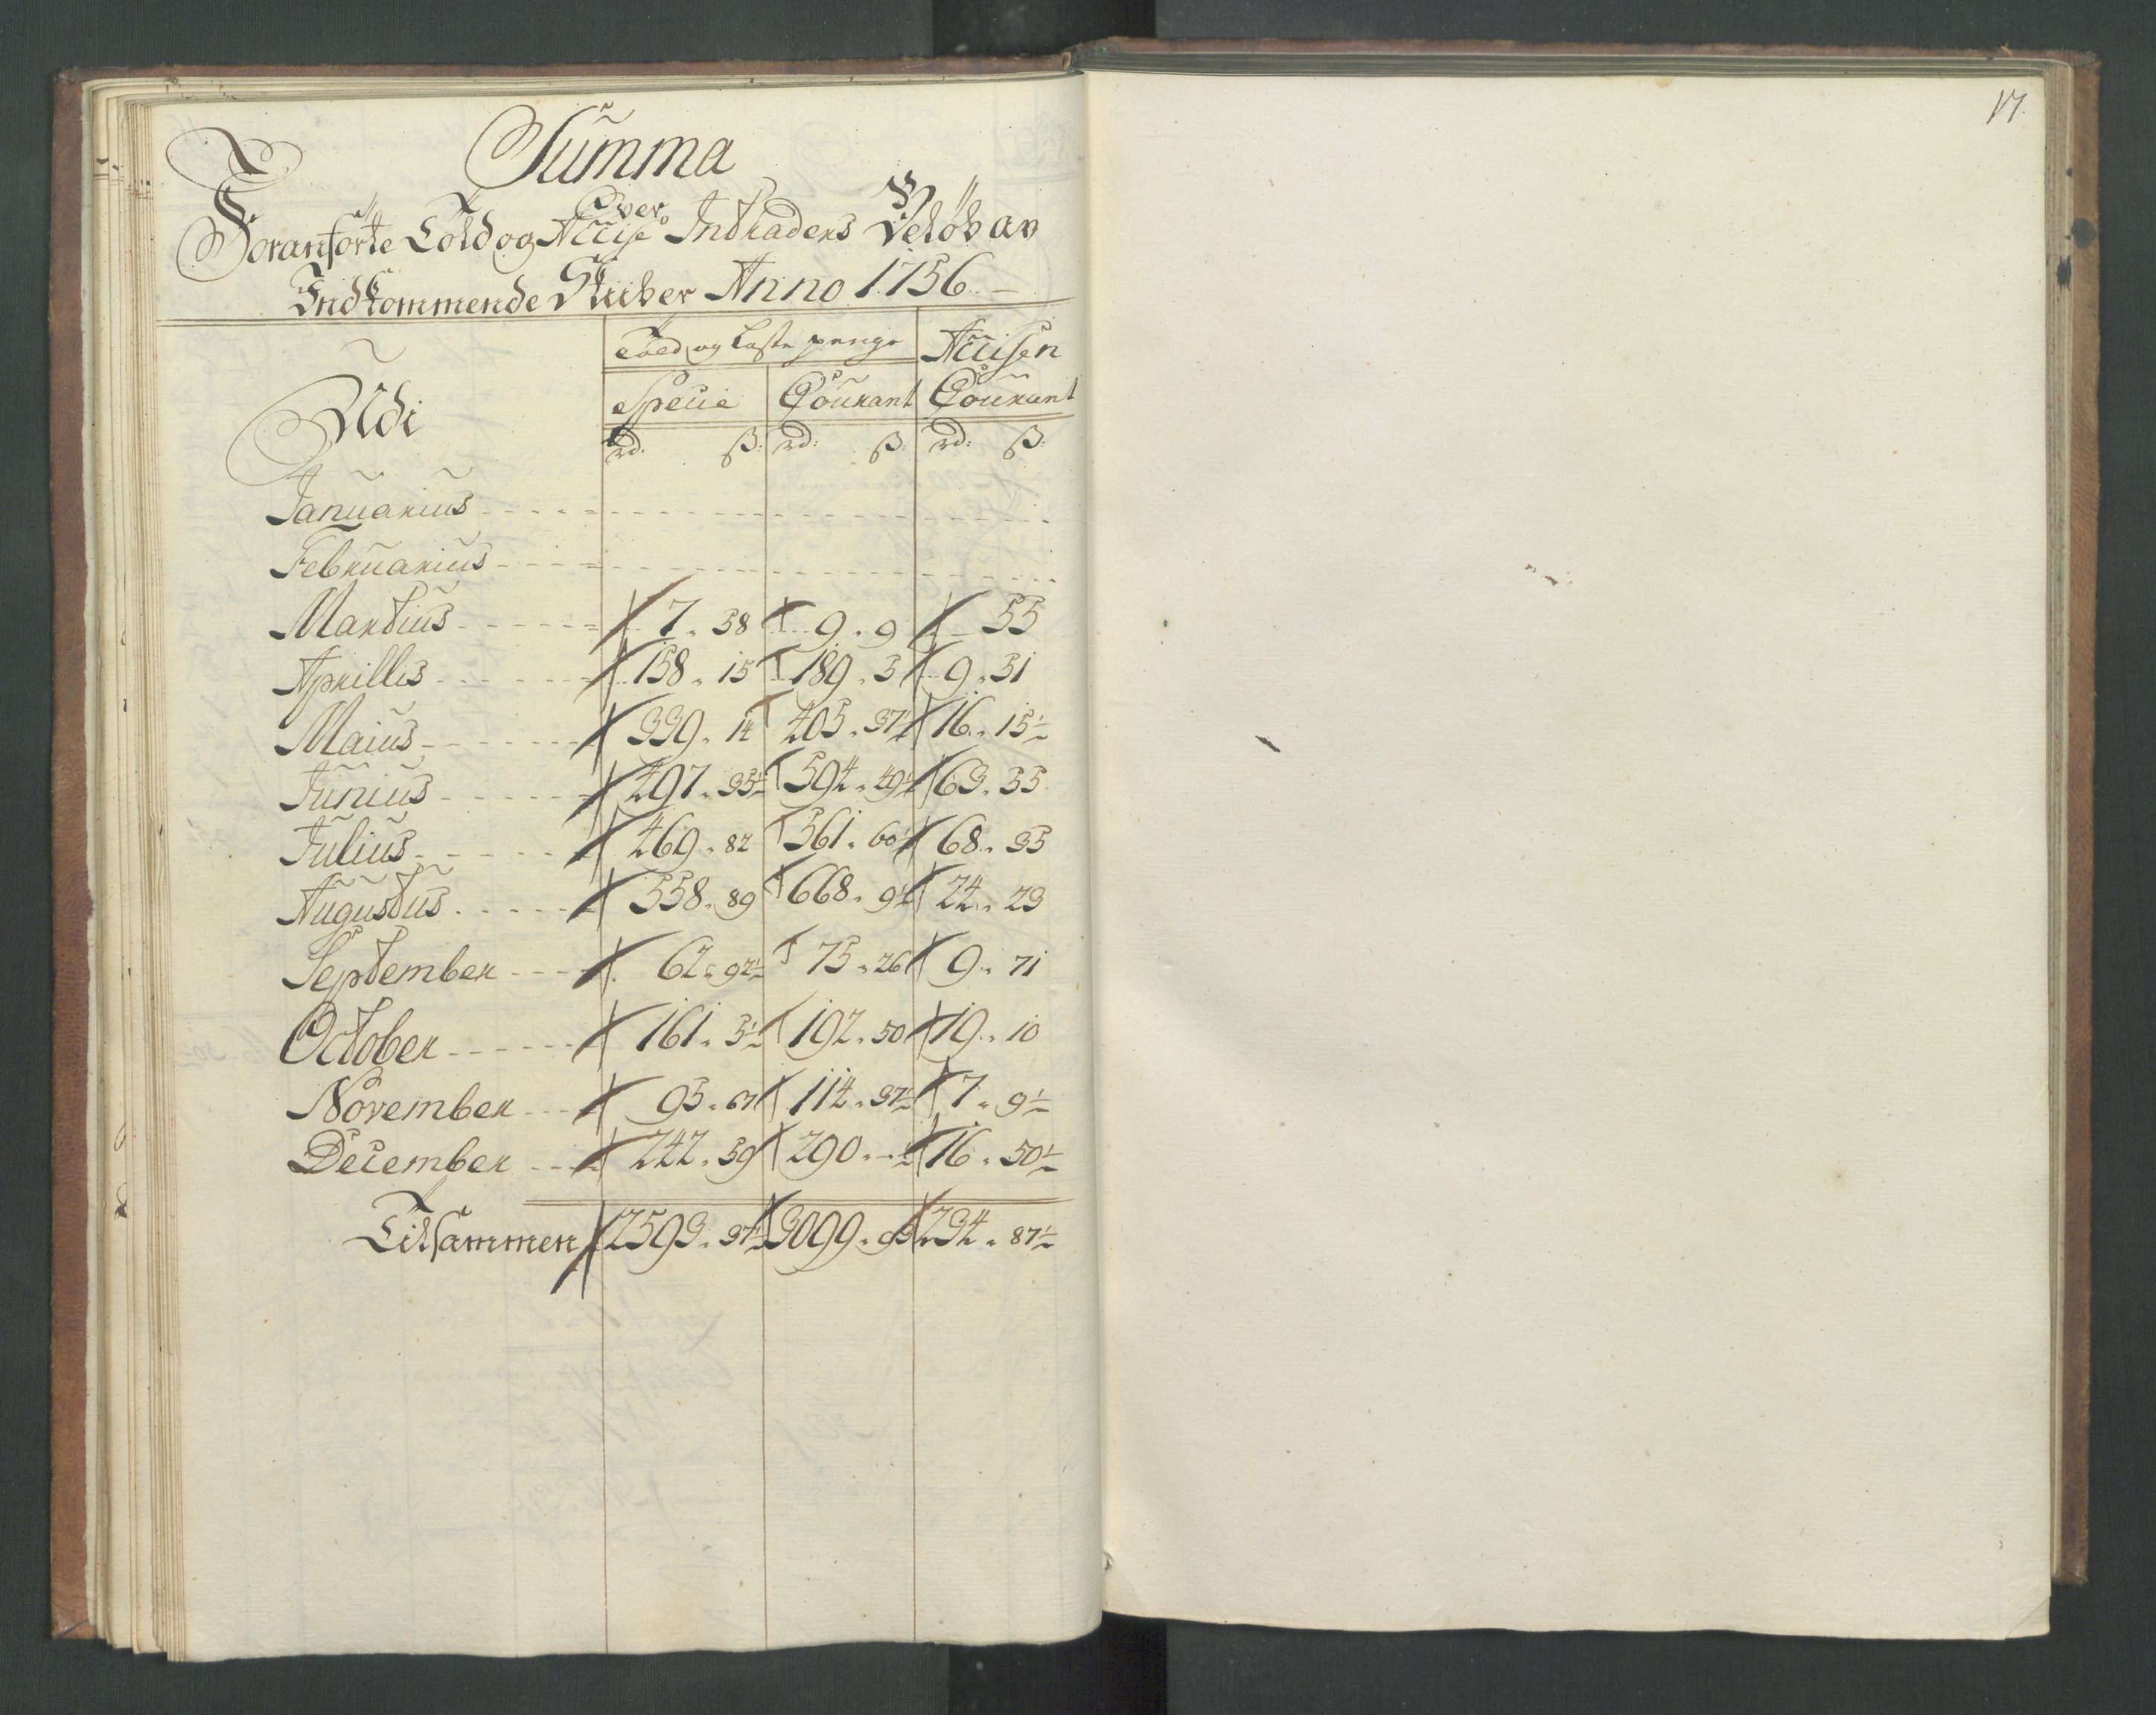 Summa
Over
Foranførte Told og Accise Indtraders Beløb av
Indkommende Skiber Anno 1756
Told og Laste penge Accisen
Udi Specie Courant Courant
rd: ß: rd: ß: rd: ß:
Januarius
Februarius
Martius 7 " 58 9 " 9 55
Aprillis 158 " 15 189 " 3 9 " 31
Maius 339 " 14 405 " 37½ 16 " 15½
Junius 497 " 35½ 594 " 49½ 63 " 35
Julius 469 " 82 561 " 60½ 68 " 35
Augustus 558 " 89 668 " 9½ 24 " 23
September 62 " 92½ 75 " 26 9 " 71
October 161 " 3½ 192 " 50 19 " 10
November 95 " 67 114 " 37½ 7 " 9½
December 242 " 59 290 " - ½ 16 " 50½
Tilsammen 2593 " 37½ 3099 " 93 234 " 87½
17.